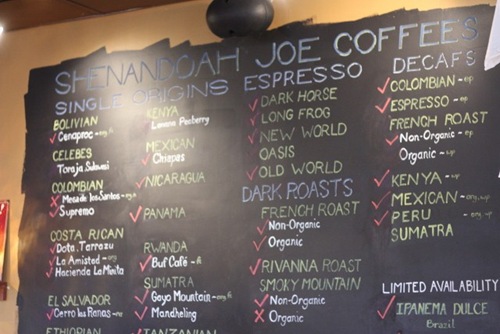 SHENANDOAH JOE COFFEES
SINGLE ORIGINS
BOLIVIAN
Cenaproc
CELEBES
Toraja, Sulawesi
COLOMBIAN
Mesa de los Santos
Supremo
COSTA RICAN
Dota, Tarrazu
La Amistad
Hacienda La Minita
EL SALVADOR
Cerro las Ranas
ETHIOPIAN
KENYA
Peaberry
MEXICAN
Chiapas
NICARAGUA
PANAMA
RWANDA
Buf Café
SUMATRA
Gayo Mountain
Mandheling
TANZANIAN
ESPRESSO
DARK HORSE
LONG FROG
NEW WORLD
OASIS
OLD WORLD
DARK ROASTS
FRENCH ROAST
Non-Organic
Organic
RIVANNA ROAST
SMOKY MOUNTAIN
Non-Organic
Organic
DECAFS
COLOMBIAN
ESPRESSO
FRENCH ROAST
Non-Organic
Organic
KENYA
MEXICAN
PERU
SUMATRA
LIMITED AVAILABILITY
IPANEMA DULCE
Brazil